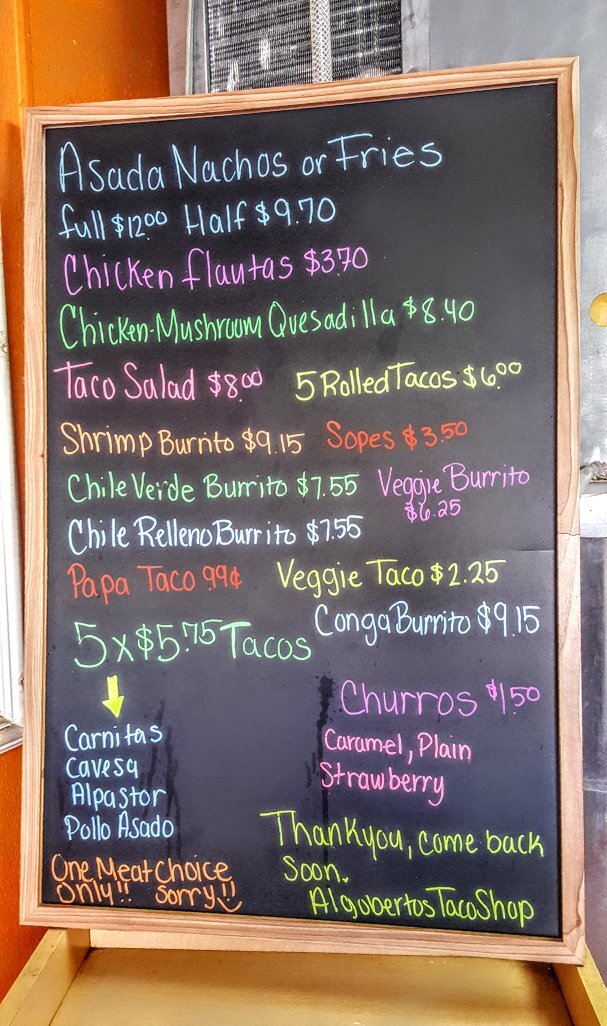 Asada Nachos or Fries
full $12.00 Half $9.70
Chicken flautas $3.70
Chicken-Mushroom Quesadilla $8.40
Taco Salad $8.00 5 Rolled Tacos $6.00
Shrimp Burrito $9.15 Sopes $3.50
Chile Verde Burrito $7.55 Veggie Burrito
$6.25
Chile Relleno Burrito $7.55
Papa Taco 99¢ Veggie Taco $2.25
Conga Burrito $9.15
5x$5.75 Tacos
Churros $1.50
Carnitas
Cavesa
Alpastor
Pollo Asado
Caramel, Plain
Strawberry
One Meat Choice
Only!! Sorry!!
Thankyou, come back
Soon.
Algubertos Taco Shop